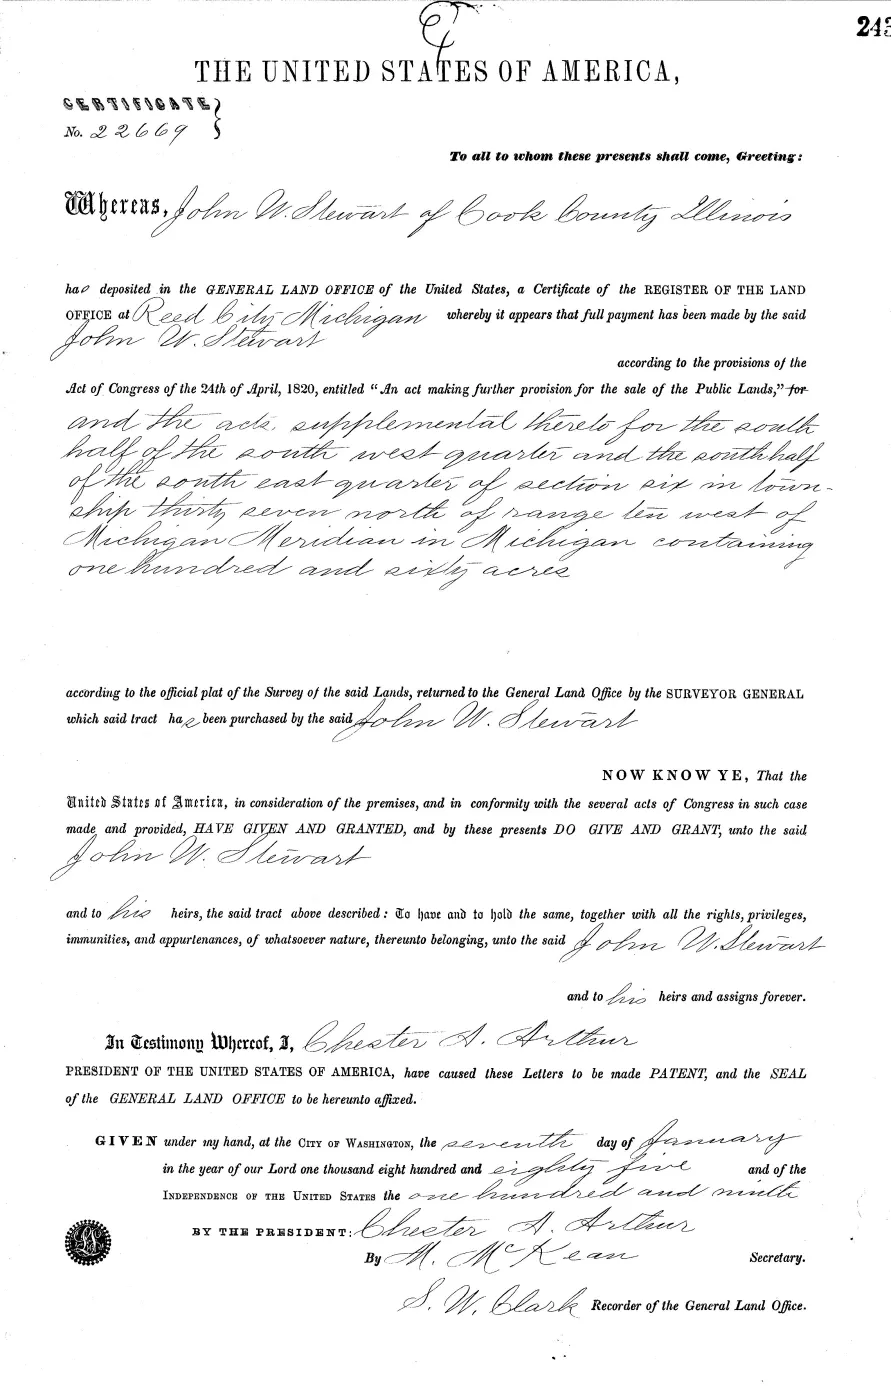 243
THE UNITED STATES OF AMERICA,
CERTIFICATE
No. 22669
To all to whom these presents shall come, Greeting:
Whereas, John W. Stewart of Cook County Illinois
has deposited in the GENERAL LAND OFFICE of the United States, a Certificate of the REGISTER OF THE LAND
OFFICE at Reed City Michigan whereby it appears that full payment has been made by the said
John W. Stewart
according to the provisions of the
Act of Congress of the 24th of April, 1820, entitled "An act making further provision for the sale of the Public Lands," for
and the acts supplemental thereto for the south
half of the south west quarter and the south half
of the south east quarter of section six in town-
ship thirty seven north of range ten west of
Michigan Meridian in Michigan containing
one hundred and sixty acres
according to the official plat of the Survey of the said Lands, returned to the General Land Office by the SURVEYOR GENERAL
which said tract has been purchased by the said John W. Stewart
NOW KNOW YE, That the
United States of America, in consideration of the premises, and in conformity with the several acts of Congress in such case
made and provided, HAVE GIVEN AND GRANTED, and by these presents DO GIVE AND GRANT, unto the said
John W. Stewart
and to his heirs, the said tract above described: To have and to hold the same, together with all the rights, privileges,
immunities, and appurtenances, of whatsoever nature, thereunto belonging, unto the said John W. Stewart
and to his heirs and assigns forever.
In Testimony Whereof, I, Chester A. Arthur
PRESIDENT OF THE UNITED STATES OF AMERICA, have caused these Letters to be made PATENT, and the SEAL
of the GENERAL LAND OFFICE to be hereunto affixed.
GIVEN under my hand, at the CITY OF WASHINGTON, the seventh day of January
in the year of our Lord one thousand eight hundred and eighty five and of the
INDEPENDENCE OF THE UNITED STATES the one hundred and ninth
BY THE PRESIDENT: Chester A. Arthur
By M. McKean Secretary.
S. W. Clark Recorder of the General Land Office.